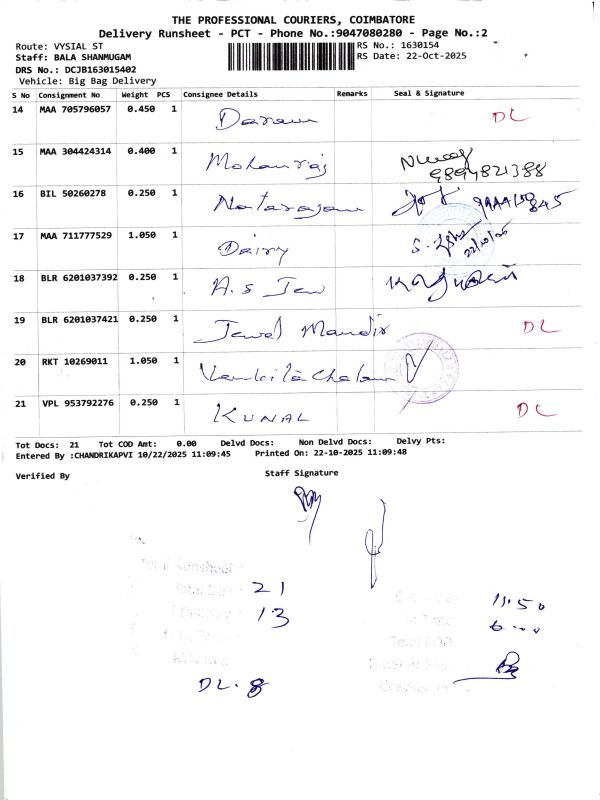 THE PROFESSIONAL COURIERS, COIMBATORE
Delivery Runsheet - PCT - Phone No.:9047080280 - Page No.:2
Route: VYSIAL ST
RS No.: 1630154
Staff: BALA SHANMUGAM
RS Date: 22-Oct-2025
DRS No.: DCJB163015402
Vehicle: Big Bag Delivery
S No Consignment No Weight PCS Consignee Details Remarks Seal & Signature
14 MAA 705796057 0.450 1 DL
15 MAA 304424314 0.400 1 Mohanraj
9894821388
16 BIL 50260278 0.250 1 Natarajan
17 MAA 711777529 1.050 1 Dairy
22/10/25
18 BLR 6201037392 0.250 1 A.S Jew
19 BLR 6201037421 0.250 1 Jewel Mandir DL
20 RKT 10269011 1.050 1
21 VPL 953792276 0.250 1 KUNAL DL
Tot Docs: 21 Tot COD Amt: 0.00 Delvd Docs: Non Delvd Docs: Delvy Pts:
Entered By :CHANDRIKAPVI 10/22/2025 11:09:45 Printed On: 22-10-2025 11:09:48
Verified By Staff Signature
Total Runsheet
Total Docs 21
13
11.50
In Time 6
Total POD
DL. 8